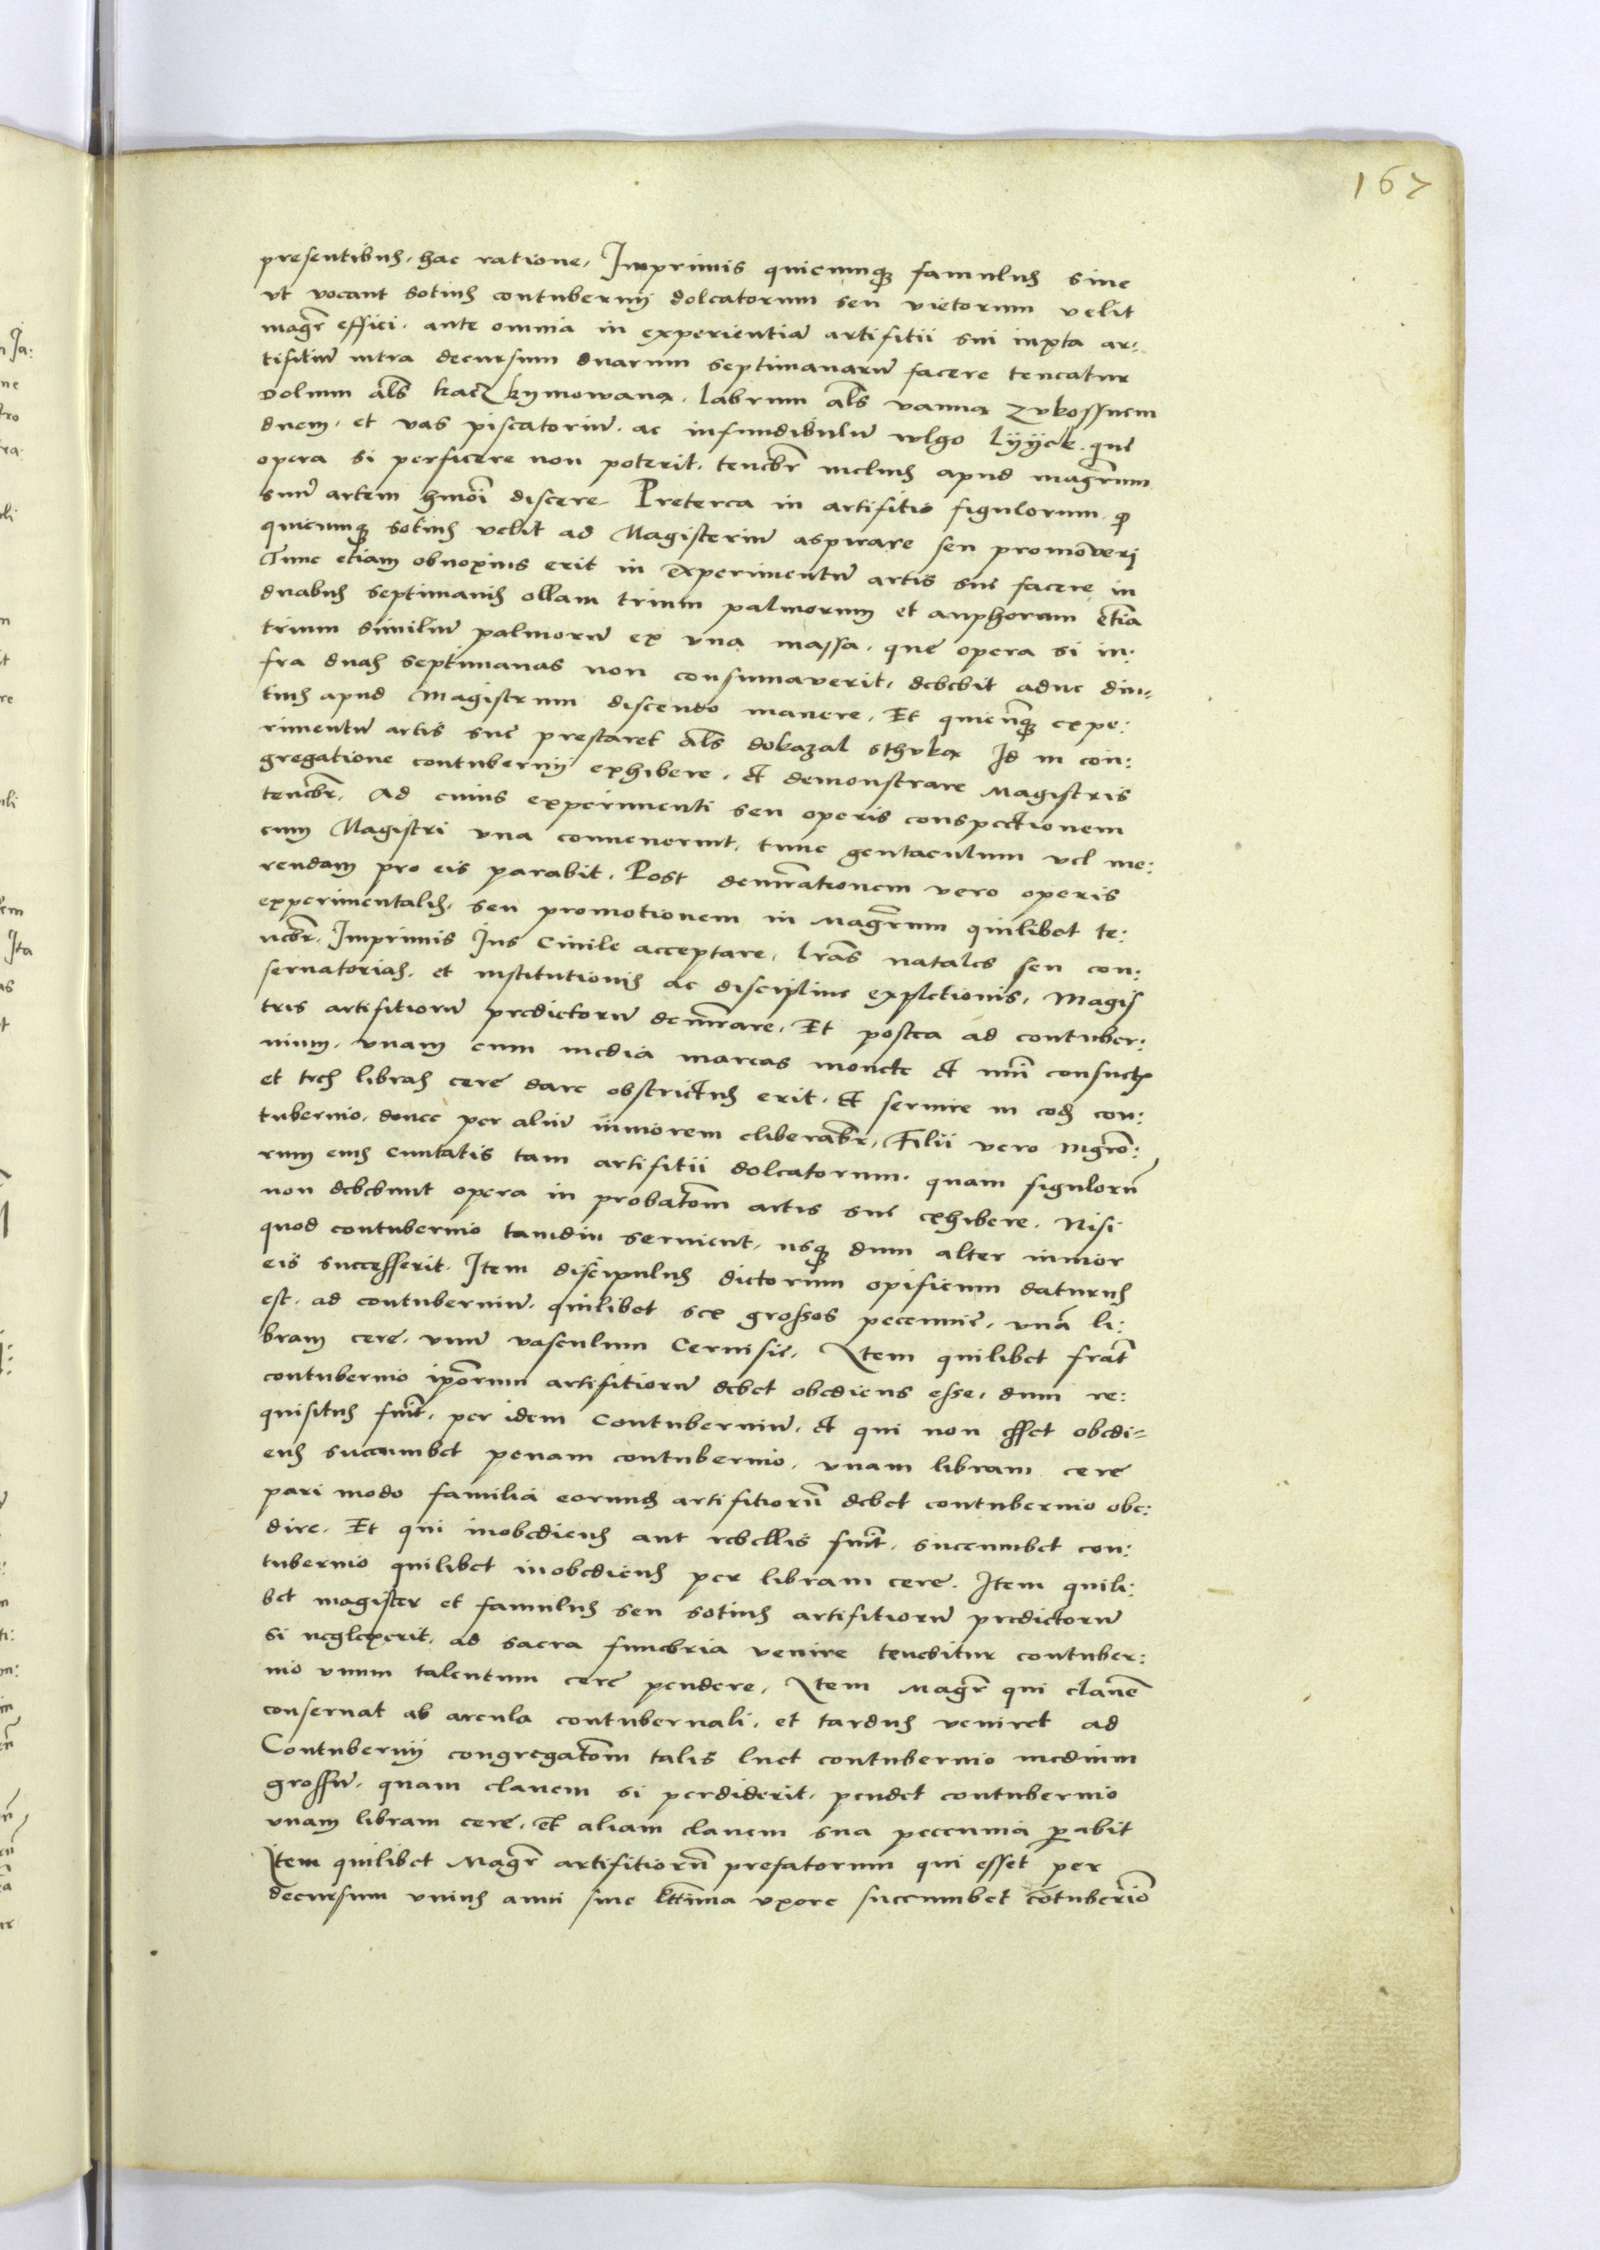 167
presentibus, hac ratione, Imprimis quicumq famulus siue
vt vocant sotius contubernij doleatorum seu vietorum velit
magr̃ effici, ante omnia in experientiã artifitii sui iuxta ar:
tifitiũ intra decursum duarum septimanarũ facere teneatur
Dolium al̃s kacz kymowana, labrum al̃s vanna zukossnem
dnem, et vas piscatoriũ, ac infundibulũ wlgo lÿÿek, que
opera si perficere non poterit, tenebr̃ melius apud magr̃um
suũ artem hmõi discere. Preterea in artifitio figulorum, q
quicumq sotius velit ad Magisteriũ aspirare seu promoveri
Tunc etiam obnoxius erit in experimentũ artis sue facere in
duabus septimanis ollam trium palmorum et anphoram etiã
trium similiũ palmorũ ex vna massa, que opera si in:
fra duas septimanas non consumaverit, debebit aduc diu-
tius apud Magistrum discendo manere, Et quicũq expe:
rimentũ artis sue prestaret al̃s dokazal sthuka Id in con:
gregatione contubernij exhibere, et demonstrare Magistris
tenebr̃, Ad cuius experimenti seu operis conspectionem
cum Magistri vna convenerint, tunc gentaculum vel me:
rendam pro eis parabit, Post demr̃ationem vero operis
experimentalis, seu promotionem in Magr̃um quilibet te:
nebr̃, Imprimis Ius Ciuile acceptare, lr̃as natales seu con:
seruatorias, et institutionis ac discipline expletionis, Magis
tris artifitiorũ predictorũ demr̃are, Et postea ad contuber:
nium, vnam cum media marcas monete et nũi consuet
et tres libras cere dare obstrictus erit, Et seruire in eod con:
tubernio, donec per aliũ iuniorem eliberabr̃, Filii vero mgrõ:
rum eius ciuitatis tam artifitii doleatorum, quam figulorũ
non debebunt opera in probatõm artis sue exhibere, Nisi
quod contubernio tamdiu seruient, usq dum alter iunior
eis successerit, Item discipulus dictorum opificum daturus
est, ad contuberniũ, quilibet sex grossos peccunie, vnã li:
bram cere, vnũ vasculum Ceruisie, Item quilibet frat̃
contubernio ip̃orum artifitiorũ debet obediens esse, dum re:
quisitus fuĩt, per idem Contuberniũ, et qui non esset obedi-
ens succumbet penam contubernio, vnam libram cere
pari modo familia eorund artifitiorũ debet contubernio obe:
dire, Et qui inobediens aut rebellis fuĩt, succumbet con:
tubernio quilibet inobediens per libram cere, Item quili:
bet magister et famulus seu sotius artifitiorũ predictorũ
si neglexerit, ad sacra funebria venire tenebitur contuber:
nio vnum talentum cere pendere, Item Magr̃ qui clauẽ
conseruat ab arcula contubernali, et tardus veniret ad
Contubernij congregatõm talis luet contubernio medium
grossũ, quam clauem si perdiderit, pendet contubernio
vnam libram cere, et aliam clauem sua peccunia parabit
Item quilibet Magr̃ artifitiorũ prefatorum qui esset per
decursum vnius anni sine lt̃tima vxore succumbet cõtubernio